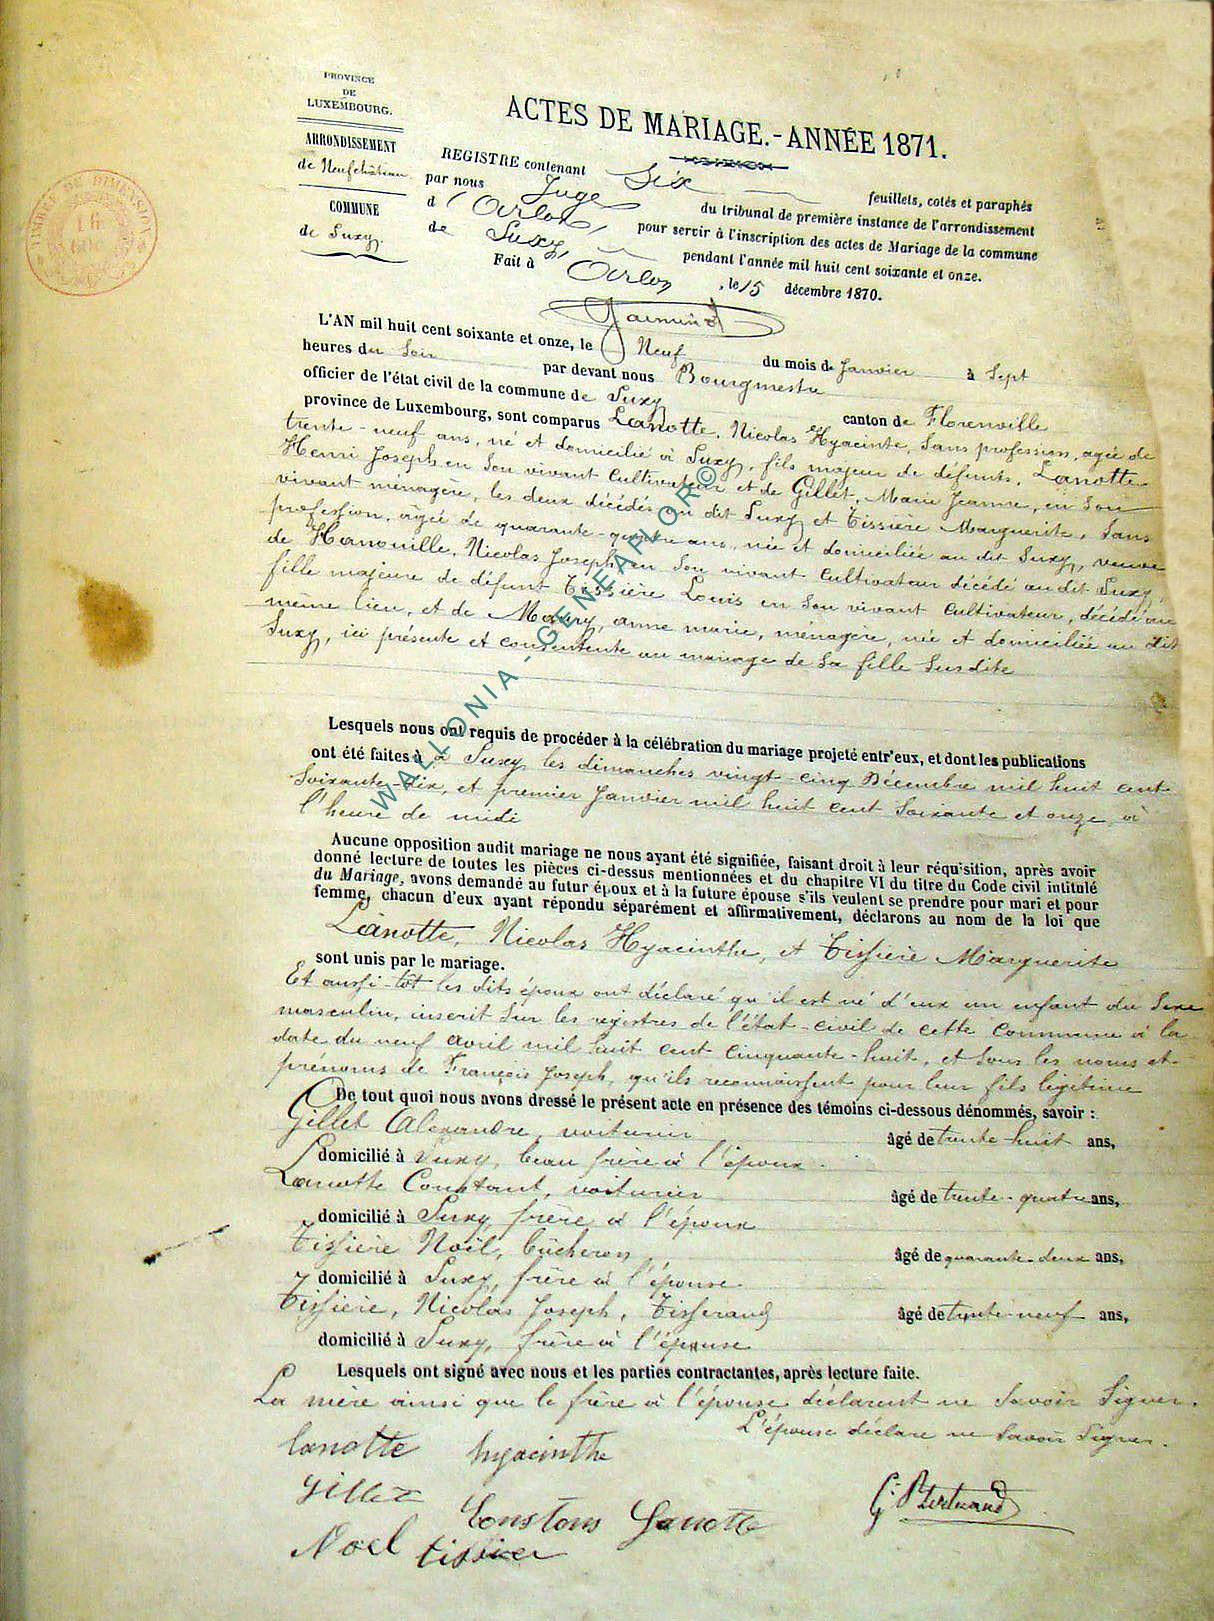 PROVINCE
DE
LUXEMBOURG.
ARRONDISSEMENT
de Neufchâteau
COMMUNE
de Suxy.
TIMBRE DE DIMENSION
ACTES DE MARIAGE.-ANNÉE 1871.
REGISTRE contenant Six feuillets, cotés et paraphés
par nous Juge du tribunal de première instance de l'arrondissement
d'Arlon, pour servir à l'inscription des actes de Mariage de la commune
de Suxy, pendant l'année mil huit cent soixante et onze.
Fait à Arlon, le 15 décembre 1870.
L'AN mil huit cent soixante et onze, le Neuf du mois de Janvier à Sept
heures du Soir par devant nous Bourgmestre
officier de l'état civil de la commune de Suxy canton de Florenville
province de Luxembourg, sont comparus Lanotte, Nicolas Hyacinte, Sans profession, agée de
trente-neuf ans, né et domicilié à Suxy, fils majeur de défunts, Lanotte
Henri Joseph en Son vivant Cultivateur et de Gillet, Marie Jeanne, en Son
vivant ménagère, les deux décédés au dit Suxy et Tissière Marguerite, Sans
profession, agée de quarante-quatre ans, née et domiciliée au dit Suxy, veuve
de Hanouille, Nicolas Joseph en Son vivant Cultivateur décédé au dit Suxy,
fille majeure de défunt Tissière Louis en Son vivant Cultivateur, décédé au
même lieu, et de Maury, anne marie, ménagère, née et domiciliée au dit
Suxy, ici présente et consentente au mariage de Sa fille Susdite
Lesquels nous ont requis de procéder à la célébration du mariage projeté entr'eux, et dont les publications
ont été faites à à Suxy les dimanches vingt-cinq Décembre mil huit cent
Soixante-dix, et premier Janvier mil huit cent Soixante et onze, à
l'heure de midi
Aucune opposition audit mariage ne nous ayant été signifiée, faisant droit à leur réquisition, après avoir
donné lecture de toutes les pièces ci-dessus mentionnées et du chapitre VI du titre du Code civil intitulé
du Mariage, avons demandé au futur époux et à la future épouse s'ils veulent se prendre pour mari et pour
femme, chacun d'eux ayant répondu séparément et affirmativement, déclarons au nom de la loi que
Lanotte, Nicolas Hyacinthe, et Tissière Marguerite
sont unis par le mariage.
Et aussi-tôt les dits époux ont déclaré qu'il est né d'eux un enfant du Sexe
masculin, inscrit Sur les registres de l'état-civil de cette Commune à la
date du neuf Avril mil huit cent Cinquante-huit, et Sous les noms et
prénoms de François Joseph, qu'ils reconnaissent pour leur fils légitime
De tout quoi nous avons dressé le présent acte en présence des témoins ci-dessous dénommés, savoir :
Gillet Alexandre, voiturier âgé de trente-huit ans,
domicilié à Suxy, beau frère à l'époux.
Lanotte Constant, voiturier âgé de trente-quatre ans,
domicilié à Suxy, frère à l'époux
Tissière Noël, bûcheron, âgé de quarante-deux ans,
domicilié à Suxy, frère à l'épouse
Tissière, Nicolas Joseph, Tisserand âgé de trente-neuf ans,
domicilié à Suxy, frère à l'épouse
Lesquels ont signé avec nous et les parties contractantes, après lecture faite.
La mère ainsi que le frère à l'épouse déclarent ne Savoir Signer.
L'épouse déclare ne Savoir Signer.
lanotte hyacinthe
Gillet
Constans Lanotte
G. Bertrand
Noel tissier
WALLONIA - GENEAFLOR©